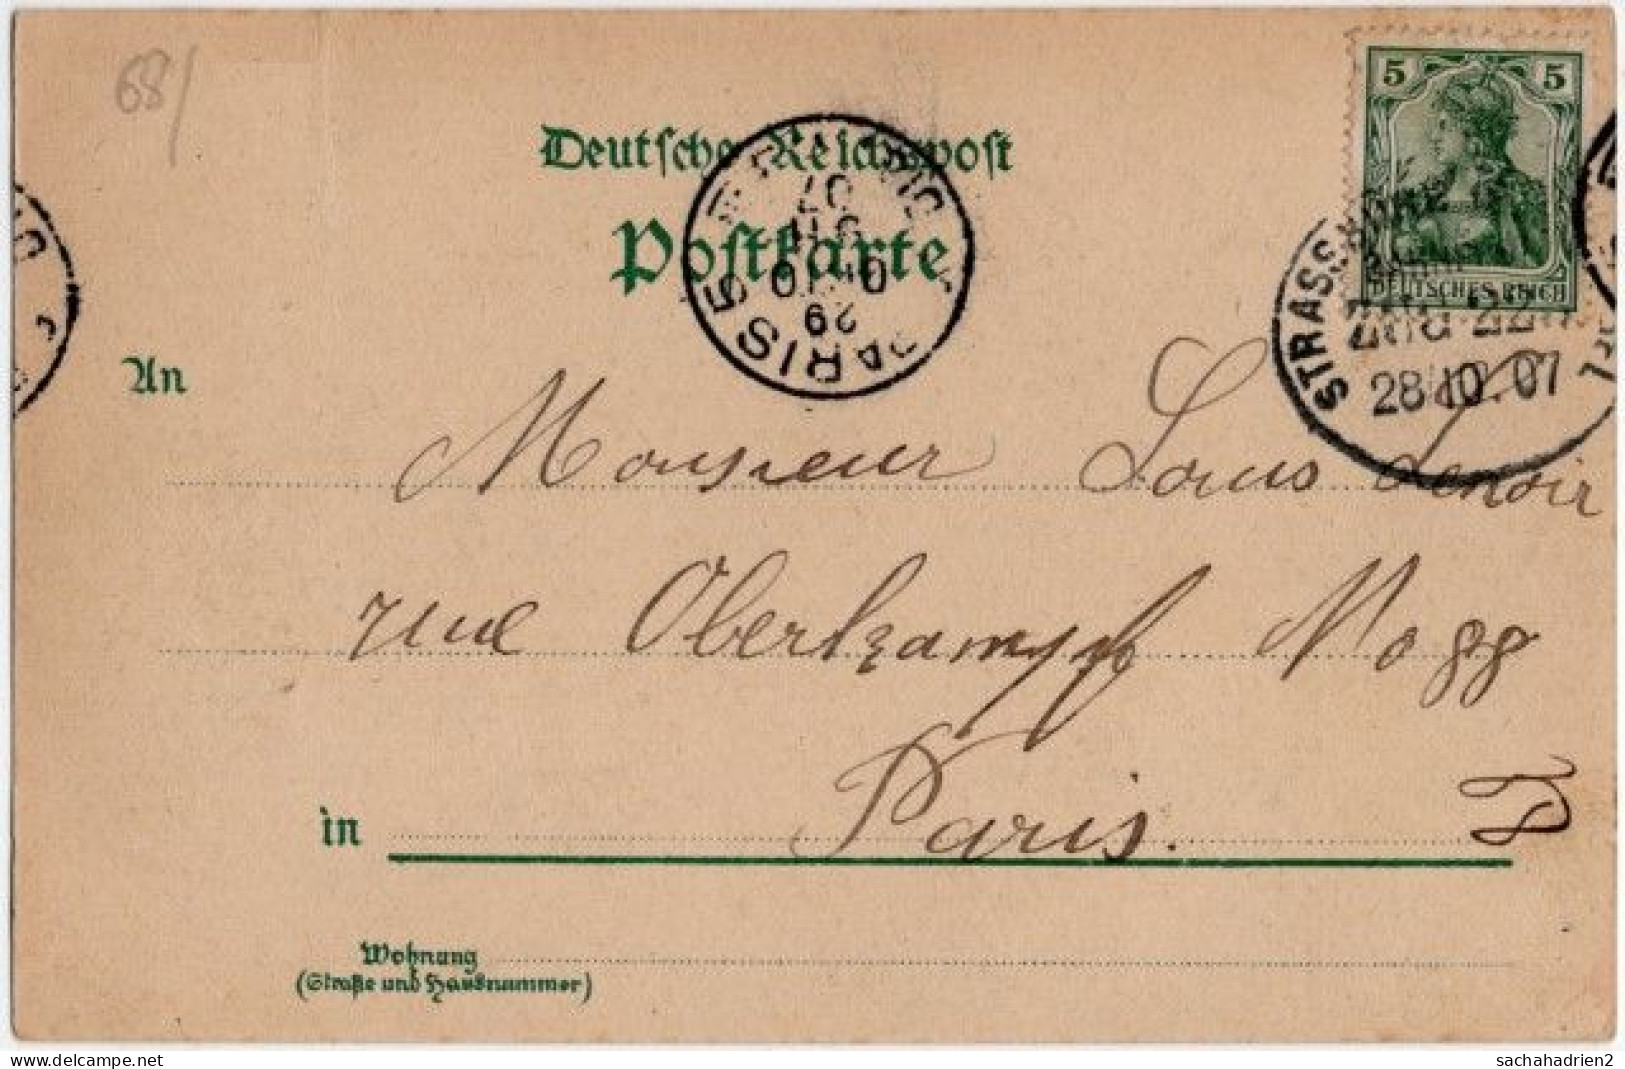 68/
Deutsche Reichspost
Postkarte
5 5
DEUTSCHES REICH
STRASSBURG
28.10.07
PARIS
29
10
07
An
Monsieur Louis Lenoir
rue Oberkampf No 88
Paris.
in
Wohnung
(Straße und Hausnummer)
www.delcampe.net
sachahadrien2